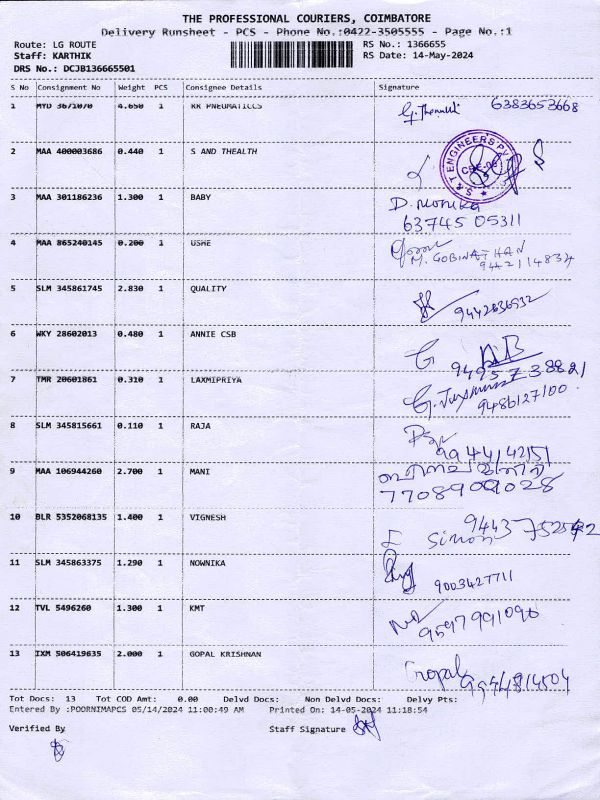 THE PROFESSIONAL COURIERS, COIMBATORE
Delivery Runsheet - PCS - Phone No.:0422-3505555 - Page No.:1
Route: LG ROUTE RS No.: 1366655
Staff: KARTHIK RS Date: 14-May-2024
DRS No.: DCJB136665501
S No Consignment No Weight PCS Consignee Details Signature
1 MYD 3671070 4.650 1 RR PNEUMATICCS 6383653668
2 MAA 400003686 0.440 1 S AND THEALTH S & T ENGINEERS
3 MAA 301186236 1.300 1 BABY D. Monika
63745 05311
4 MAA 865240145 0.200 1 USHE M. GOBINATHAN
9442114834
5 SLM 345861745 2.830 1 QUALITY 9442636932
6 WKY 28602013 0.480 1 ANNIE CSB
9495738821
7 TMR 20601861 0.310 1 LAXMIPRIYA
9486127100
8 SLM 345815661 0.110 1 RAJA
9944142151
9 MAA 106944260 2.700 1 MANI
7708909028
10 BLR 5352068135 1.400 1 VIGNESH Simon
11 SLM 345863375 1.290 1 NOWNIKA 9003427711
12 TVL 5496260 1.300 1 KMT 9597991090
13 IXM 506419635 2.000 1 GOPAL KRISHNAN Gopal
Tot Docs: 13 Tot COD Amt: 0.00 Delvd Docs: Non Delvd Docs: Delvy Pts:
Entered By :POORNIMAPCS 05/14/2024 11:00:49 AM Printed On: 14-05-2024 11:18:54
Verified By Staff Signature